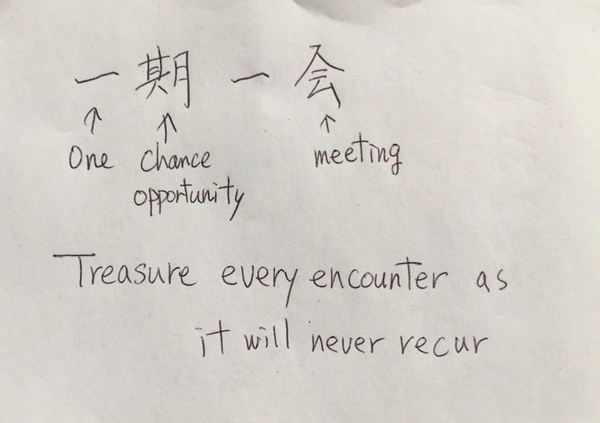 一期一会
↑ ↑ ↑
One chance meeting
opportunity
Treasure every encounter as
it will never recur